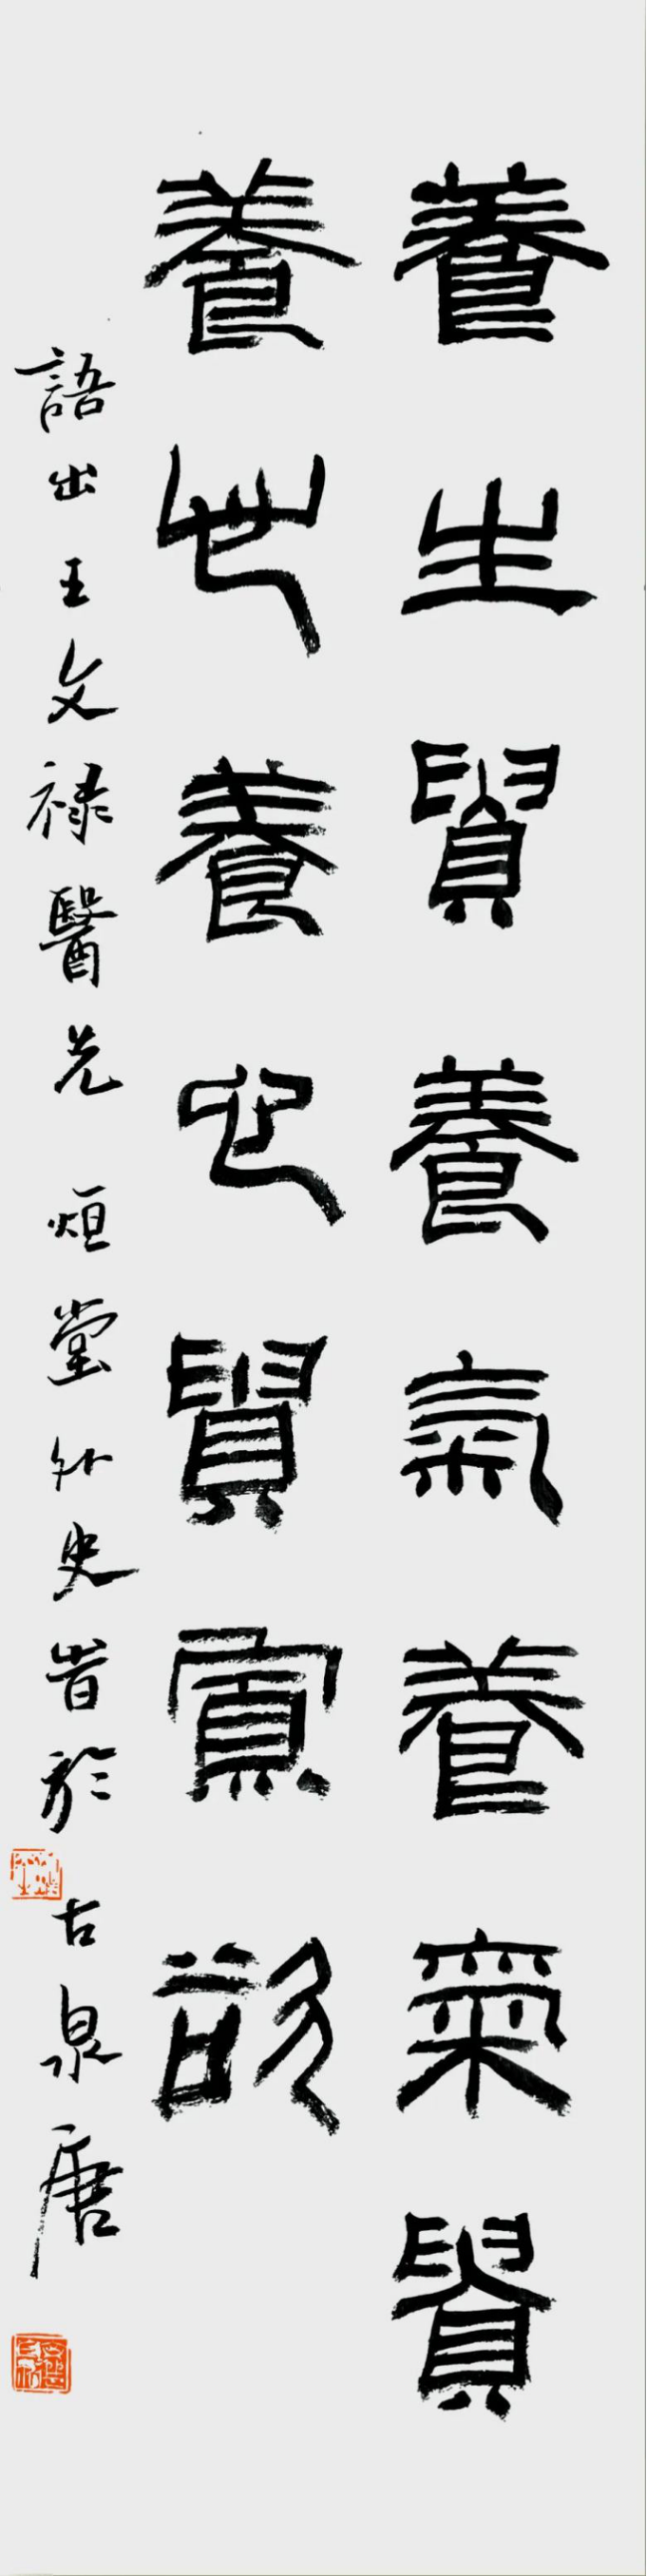 養生貴養氣養氣貴
養心養心貴寡欲
語出王文禄醫先 烜堂外史旹於古泉唐